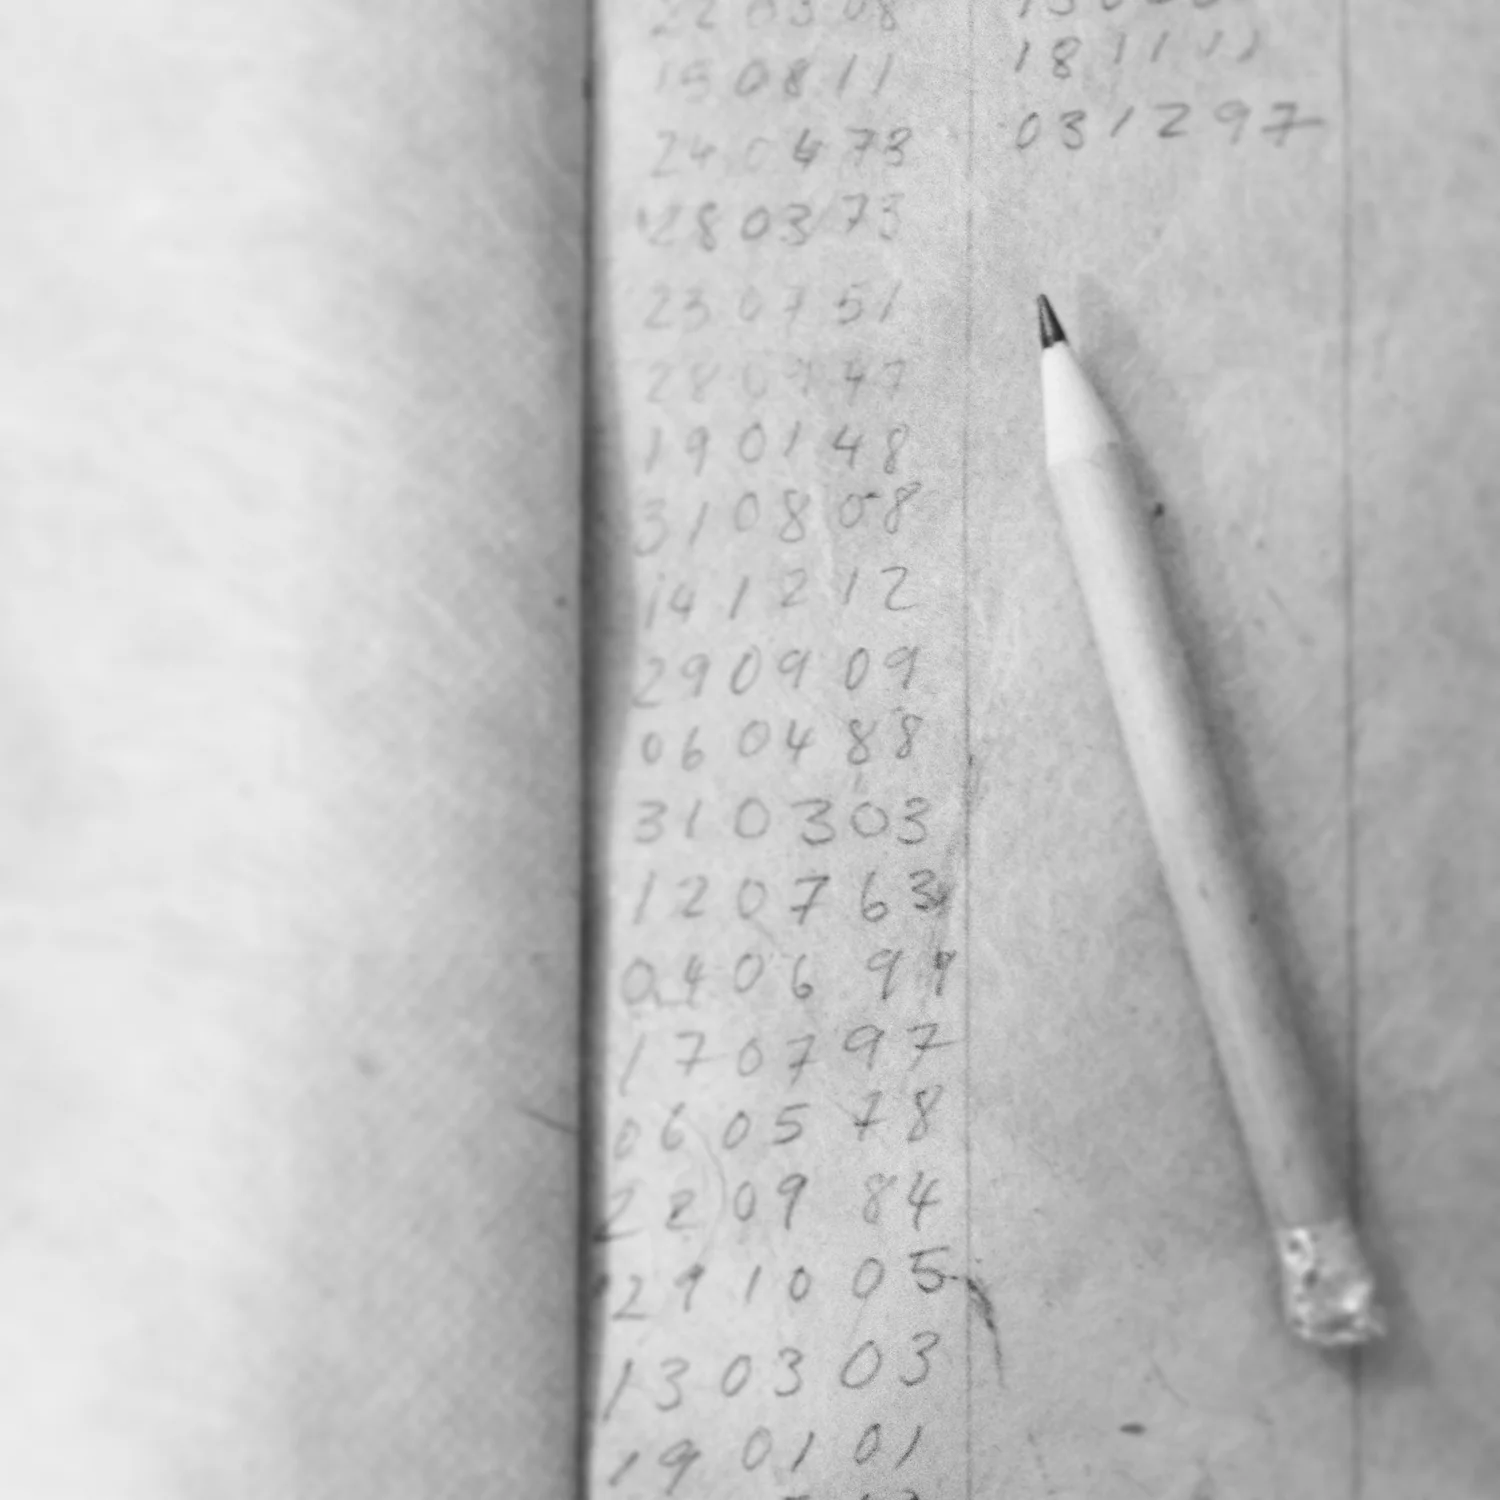 22 03 08
15 08 11
24 04 73
28 03 73
23 07 51
28 07 47
19 01 48
31 08 08
14 12 12
29 09 09
06 04 88
31 03 03
12 07 63
04 06 99
17 07 97
06 05 78
22 09 84
29 10 05
13 03 03
19 01 01
18 11 11
03 12 97